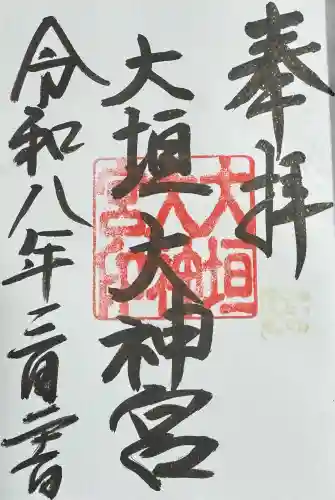 奉拝
大垣大神宮
大垣
大神
宮印
令和八年三月二十一日